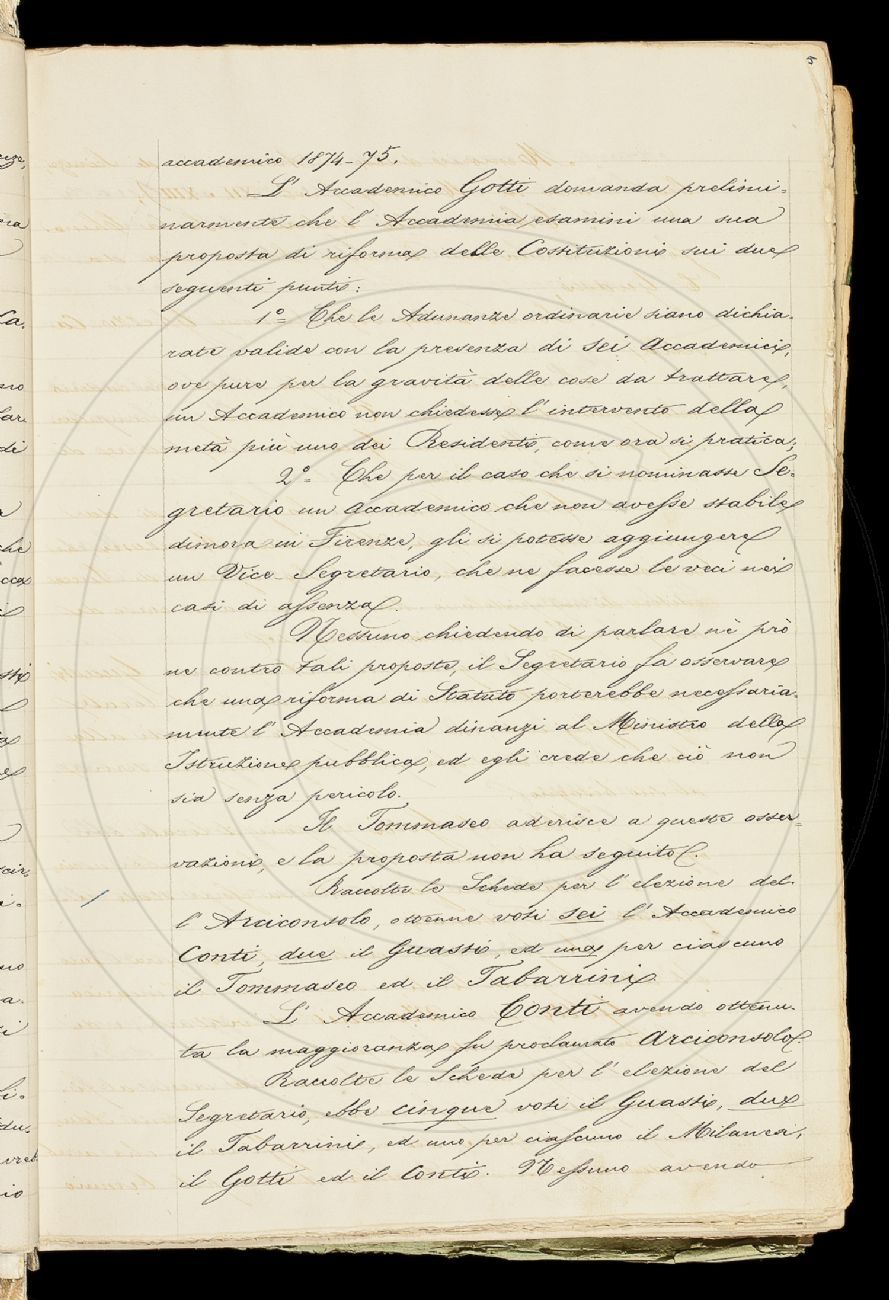 5
accademico 1874-75.
L' Accademico Gotti domanda prelimi-
narmente che l' Accademia esamini una sua
proposta di riforma delle Costituzioni sui due
seguenti punti:
1° = Che le Adunanze ordinarie siano dichia-
rate valide con la presenza di sei Accademici,
ove pure per la gravità delle cose da trattare,
un Accademico non chiedesse l' intervento della
metà più uno dei Residenti, come ora si pratica;
2° = Che per il caso che si nominasse Se-
gretario un Accademico che non avesse stabile
dimora in Firenze, gli si potesse aggiungere
un Vice Segretario, che ne facesse le veci nei
casi di assenza.
Nessuno chiedendo di parlare nè prò
ne contro tali proposte, il Segretario fa osservare
che una riforma di Statuto porterebbe necessaria-
mente l' Accademia dinanzi al Ministro della
Istruzione pubblica, ed egli crede che ciò non
sia senza pericolo.
Il Tommaseo aderisce a queste osser-
vazioni, e la proposta non ha seguito.
Raccolte le Schede per l' elezione del-
l' Arciconsolo, ottenne voti sei l' Accademico
Conti, due il Guasti, ed uno per ciascuno
il Tommaseo ed il Tabarrini.
L' Accademico Conti avendo ottenu-
ta la maggioranza fu proclamato Arciconsolo.
Raccolte le Schede per l' elezione del
Segretario, ebbe cinque voti il Guasti, due
il Tabarrini, ed uno per ciascuno il Milanesi,
il Gotti ed il Conti. Nessuno avendo